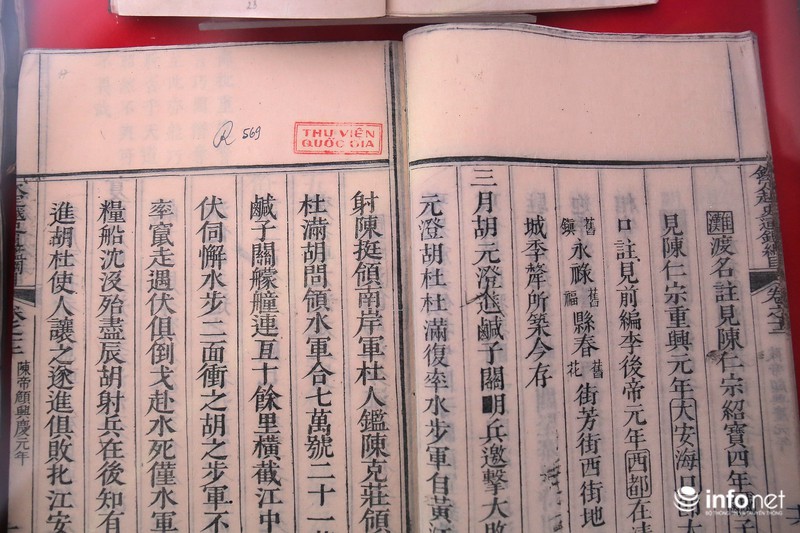 灘渡名註見陳仁宗紹寶四年
見陳仁宗重興元年大安海口
口註見前編李後帝元年西都在清
舊鎮永祿舊福縣春舊花街芳街西街地
城季犛所築今存
三月胡元澄進鹹子關明兵邀擊大敗
元澄胡杜杜滿復率水步軍自黃江
R 569
THƯ VIỆN
QUỐC GIA
射陳挺領南岸軍杜人鑑陳克莊領
杜滿胡問領水軍合七萬號二十一
鹹子關艨艟連亙十餘里橫截江中
伏伺懈水步二面衝之胡之步軍不
率竄走遇伏俱倒戈赴水死僅水軍
糧船沈沒殆盡辰胡射兵在後知有
進胡杜使人讓之遂進俱敗北江安
陳帝興慶元年
23
infonet